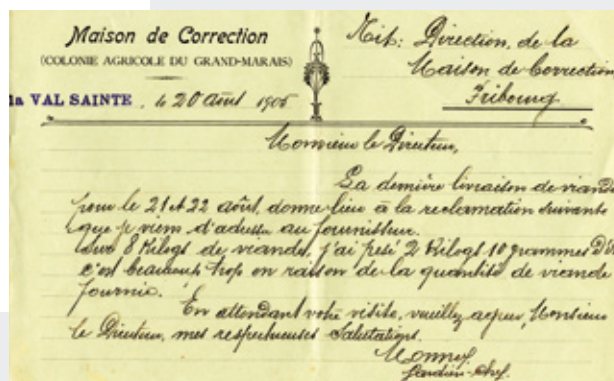 Maison de Correction
(COLONIE AGRICOLE DU GRAND-MARAIS)
la VAL SAINTE, le 20 Août 1906
Tit: Direction, de la
Maison de Correction
Fribourg
Monsieur le Directeur,
La dernière livraison de viande
pour le 21 et 22 août, donne lieu à la reclamation suivante
que je viens d'adresser au fournisseur.
Sur 8 Kilogs de viandes, j'ai pesé 2 Kilogs 10 grammes
c'est beaucoup trop en raison de la quantité de viande
fournie.
En attendant votre visite, veuillez agréer, Monsieur
le Directeur, mes respectueuses Salutations.
Gardien-chef.